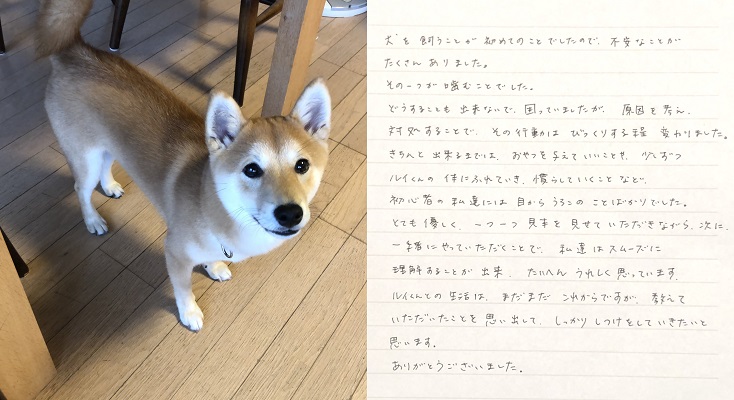 犬を飼うことが初めてのことでしたので、不安なことが
たくさんありました。
その一つが噛むことでした。
どうすることも出来ないで、困っていましたが、原因を考え、
対処することで、その行動はびっくりする程変わりました。
きちんと出来るまでは、おやつを与えていいことや、少しずつ
ルイくんの体にふれていき、慣らしていくことなど、
初心者の私達には目からうろこのことばかりでした。
とても優しく、一つ一つ見本を見せていただきながら、次に、
一緒にやっていただくことで、私達はスムーズに
理解することが出来、たいへんうれしく思っています。
ルイくんとの生活は、まだまだこれからですが、教えて
いただいたことを思い出して、しっかりしつけをしていきたいと
思います。
ありがとうございました。